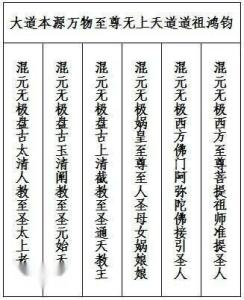 大道本源万物至尊无上天道道祖鸿钧
混元无极盘古太清人教至圣太上老
混元无极盘古玉清阐教至圣元始天
混元无极盘古上清截教至圣通天教主
混元无极娲皇至尊至人圣母女娲娘娘
混元无极西方佛门阿弥陀佛接引圣人
混元无极西方至尊菩提祖师准提圣人